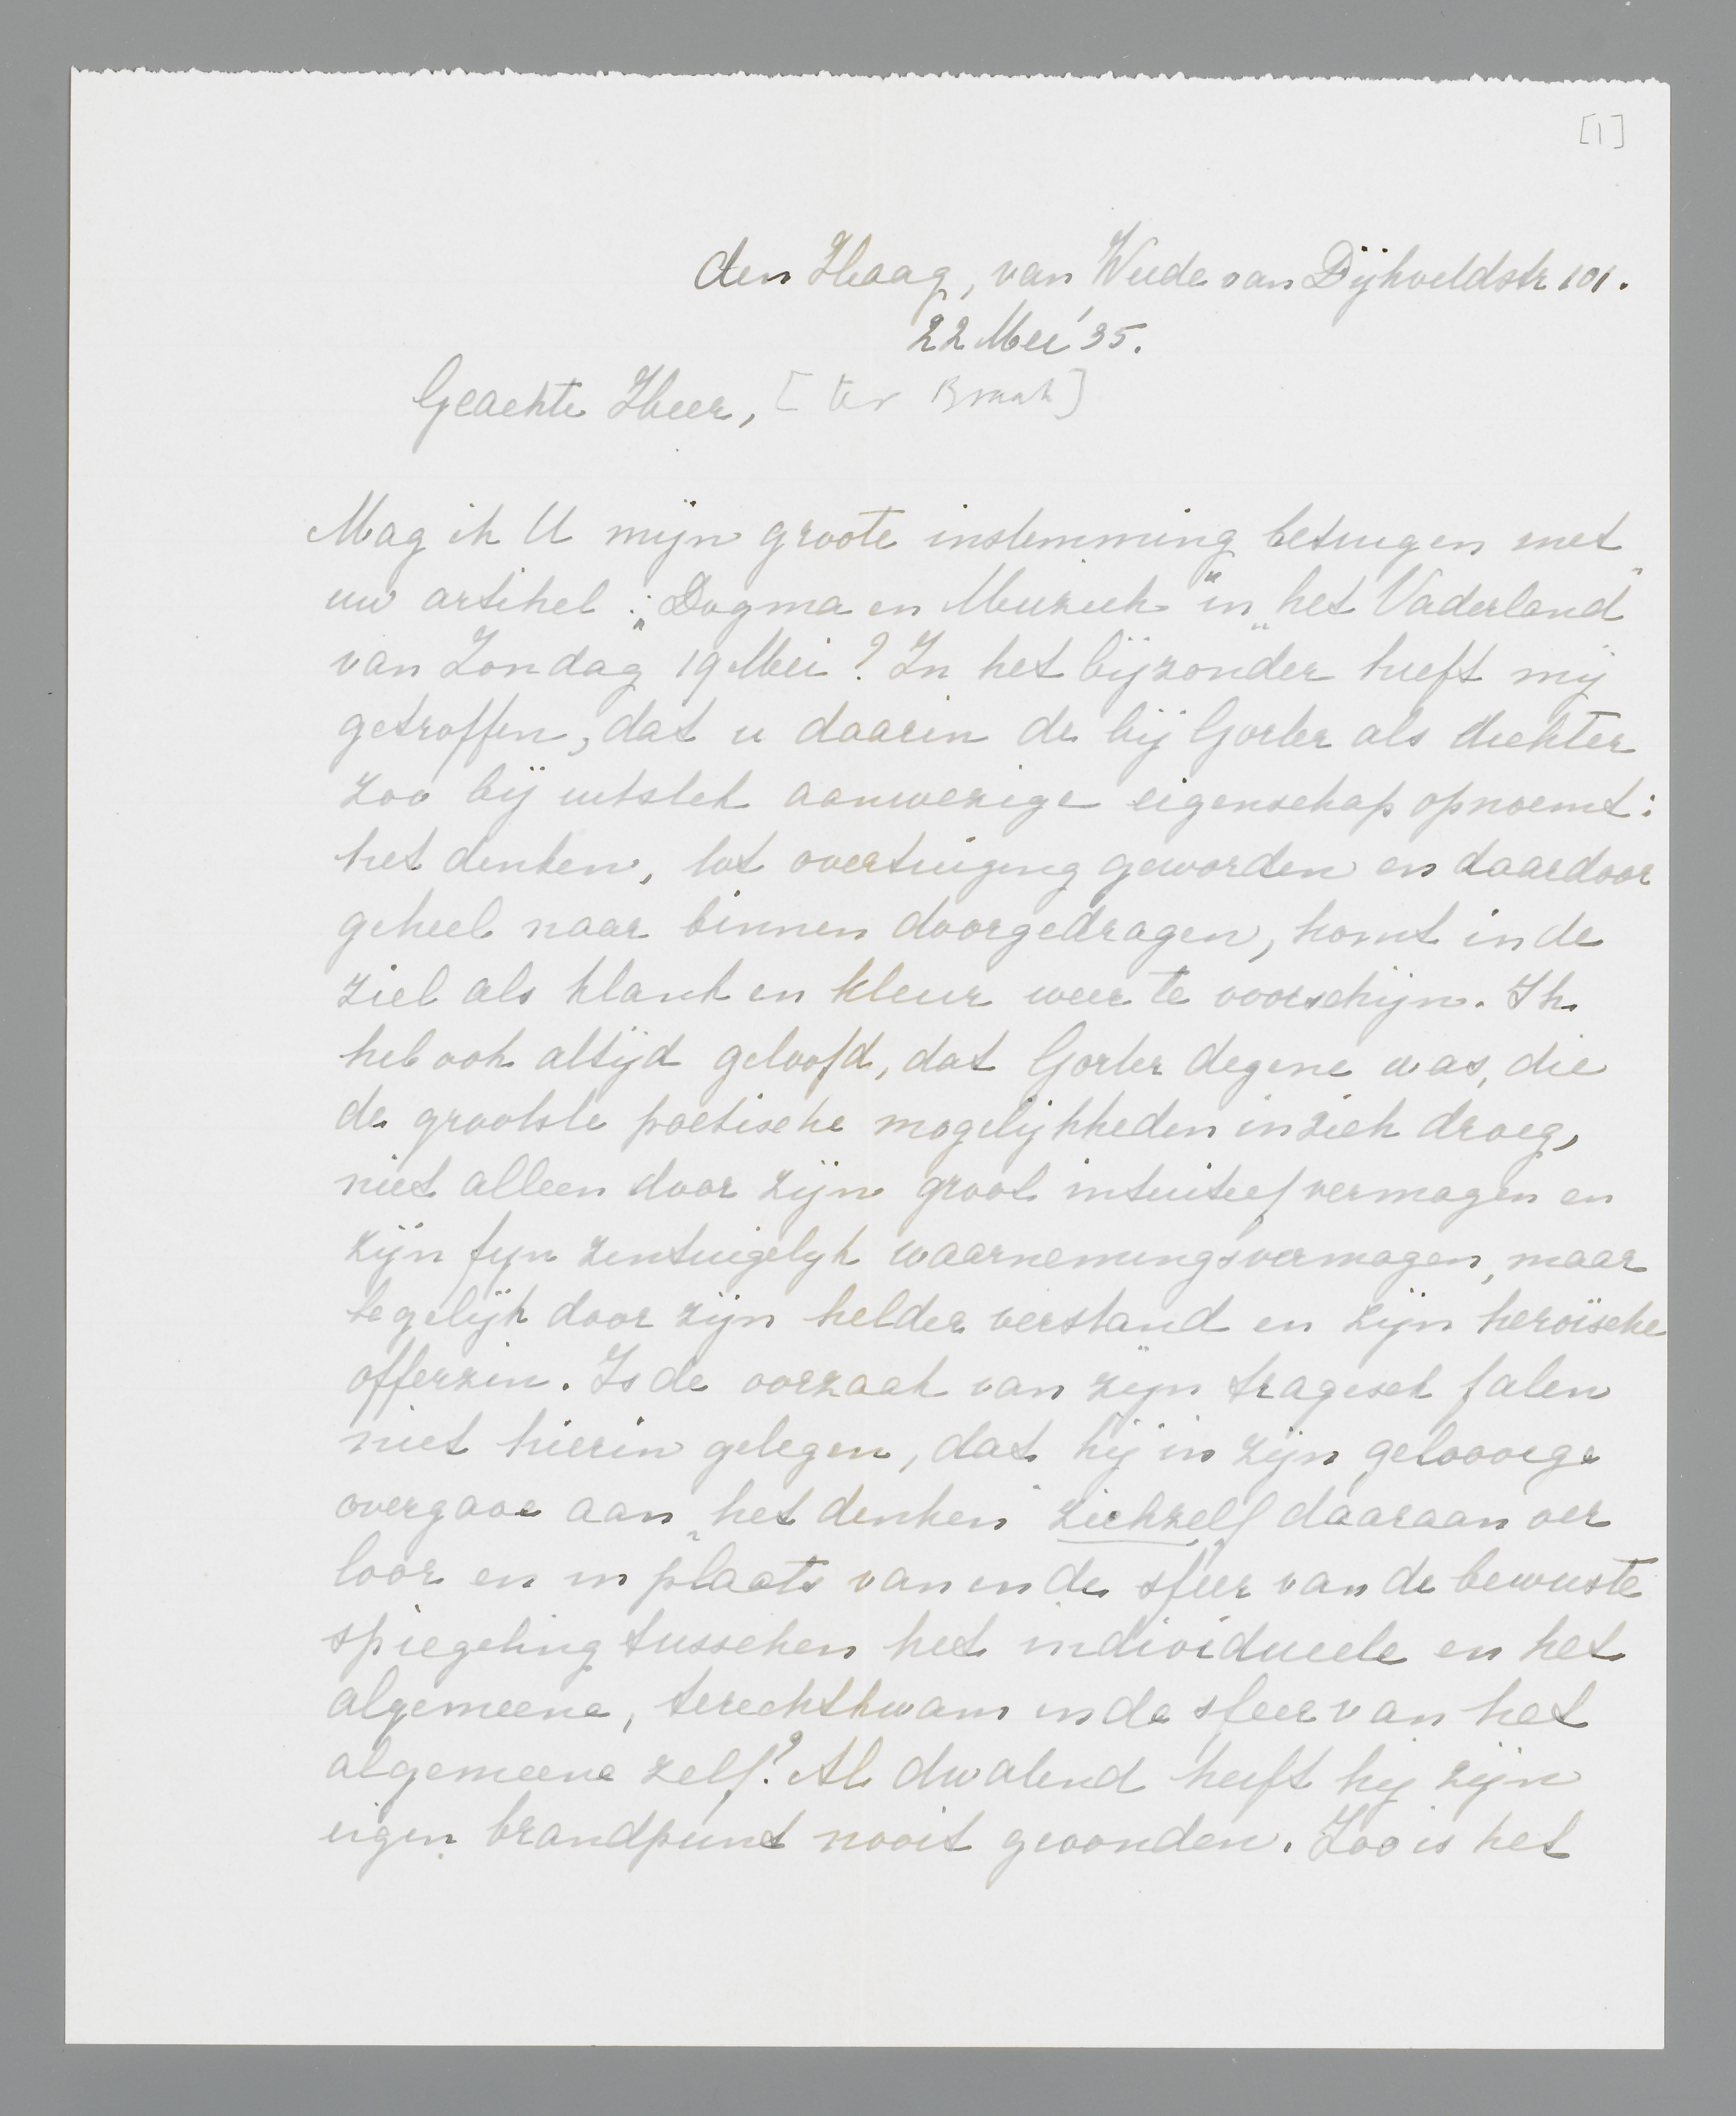 [1]
den Haag, van Weede van Dijkveldstr 101.
22 Mei '35.
Geachte Heer, [ter Braak]
Mag ik U mijn groote instemming betuigen met
uw artikel: „Dogma en Muziek" in „het Vaderland"
van Zondag 19 Mei? In het bijzonder heeft mij
getroffen, dat u daarin de bij Gorter als dichter
zoo bij uitstek aanwezige eigenschap opnoemt:
het denken, tot overtuiging geworden en daardoor
geheel naar binnen doorgedragen, komt in de
ziel als klank en kleur weer te voorschijn. Ik
heb ook altijd geloofd, dat Gorter degene was, die
de grootste poëtische mogelijkheden in zich droeg,
niet alleen door zijn groot intuitief vermogen en
zijn fijn zintuigelijk waarnemingsvermogen, maar
tegelijk door zijn helder verstand en zijn heroïsche
offerzin. Is de oorzaak van zijn tragisch falen
niet hierin gelegen, dat hij in zijn geloovige
overgave aan „het denken" zichzelf daaraan ver
loor en in plaats van in de sfeer van de bewuste
spiegeling tusschen het individueele en het
algemeene, terechtkwam in de sfeer van het
algemeene zelf? Al dwalend heeft hij zijn
eigen brandpunt nooit gevonden. Zoo is het